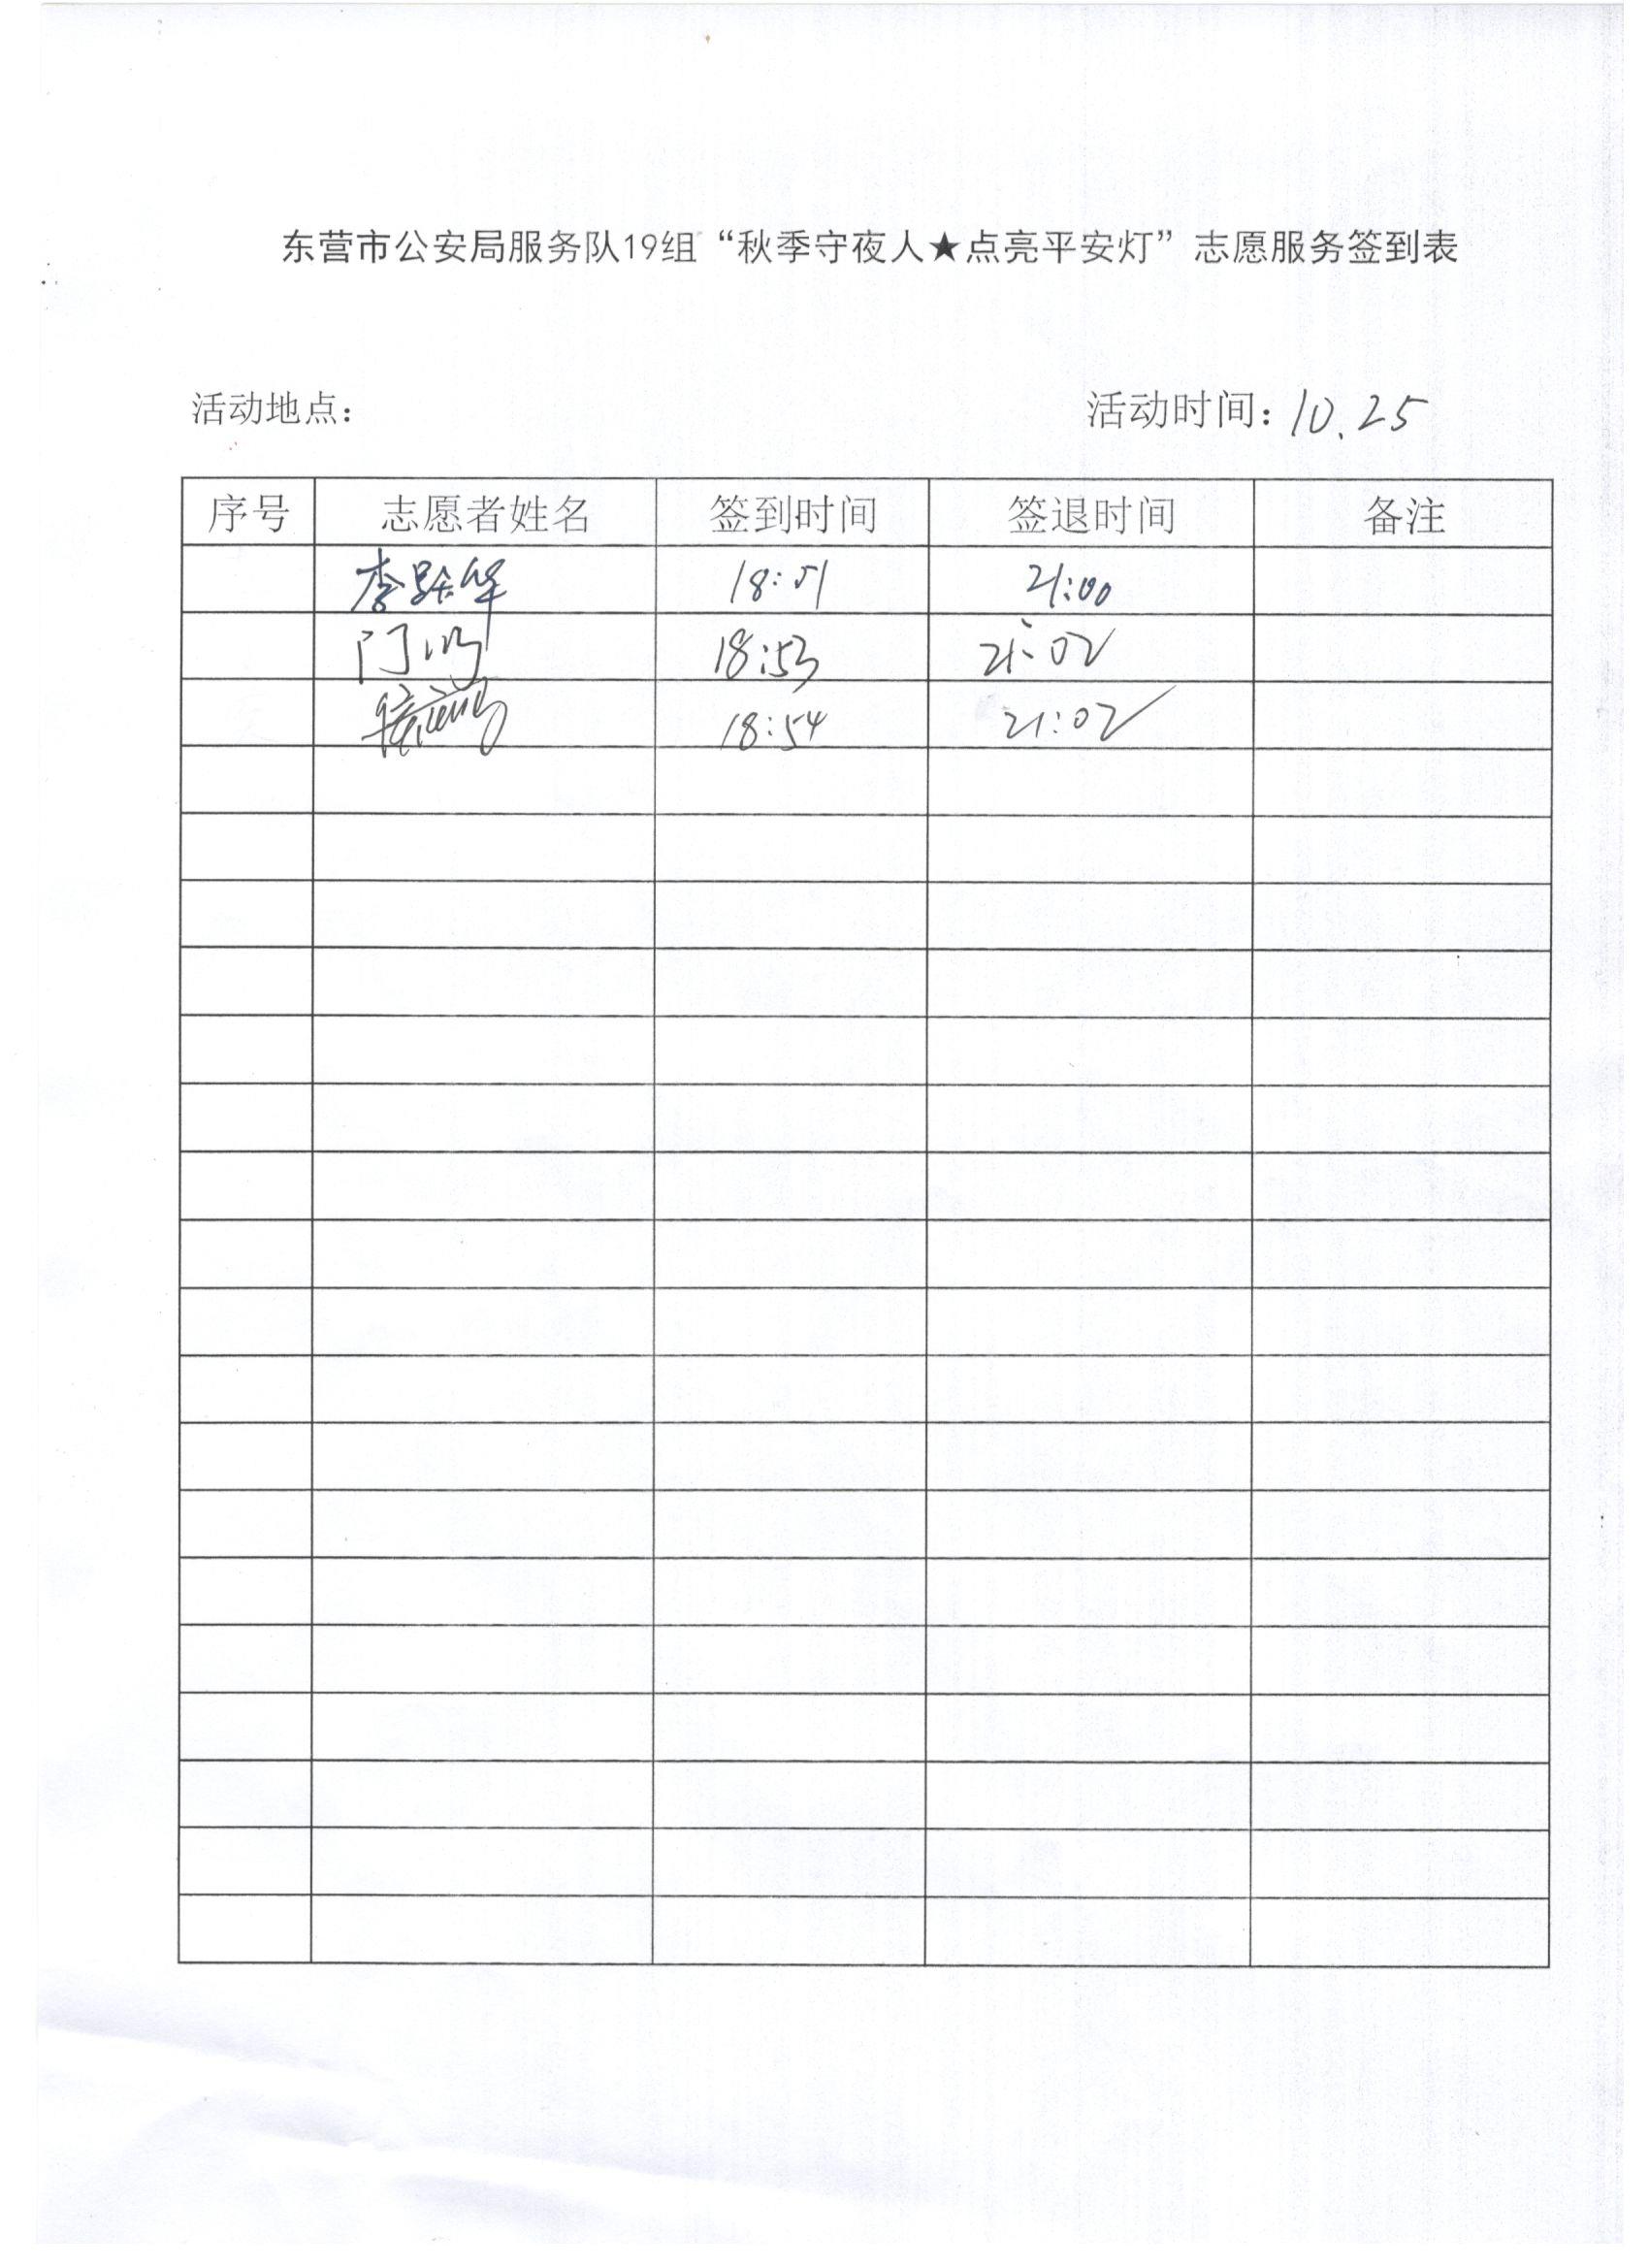 东营市公安局服务队19组“秋季守夜人★点亮平安灯”志愿服务签到表
活动地点： 活动时间：10.25
序号 志愿者姓名 签到时间 签退时间 备注
李跃华 18:51 21:00
门 18:53 21:02
18:54 21:02